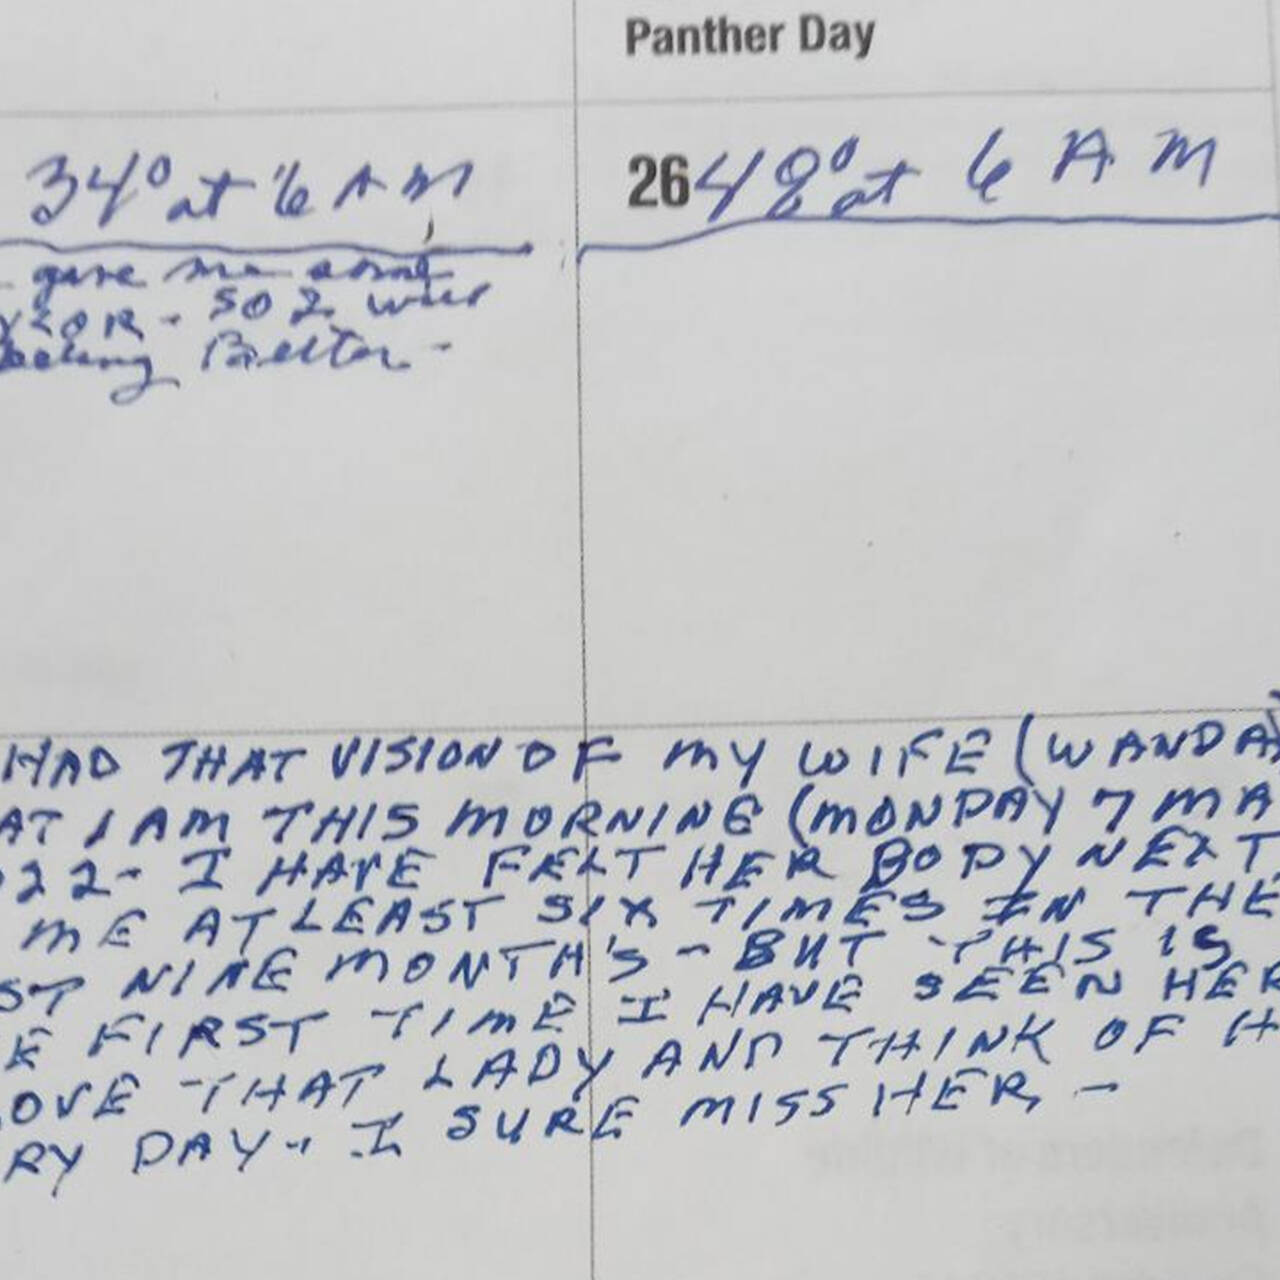 Panther Day
34° at 6 AM
26 48° at 6 AM
gave me some
SO I will
Better -
HAD THAT VISION OF MY WIFE (WANDA)
AT I AM THIS MORNINE (MONDAY 7 MA
022- I HAVE FELT HER BODY NEXT
ME AT LEAST SIX TIMES IN THE
ST NINE MONTH'S - BUT THIS IS
E FIRST TIME I HAVE SEEN HER
OVE THAT LADY AND THINK OF H
RY DAY - I SURE MISS HER -